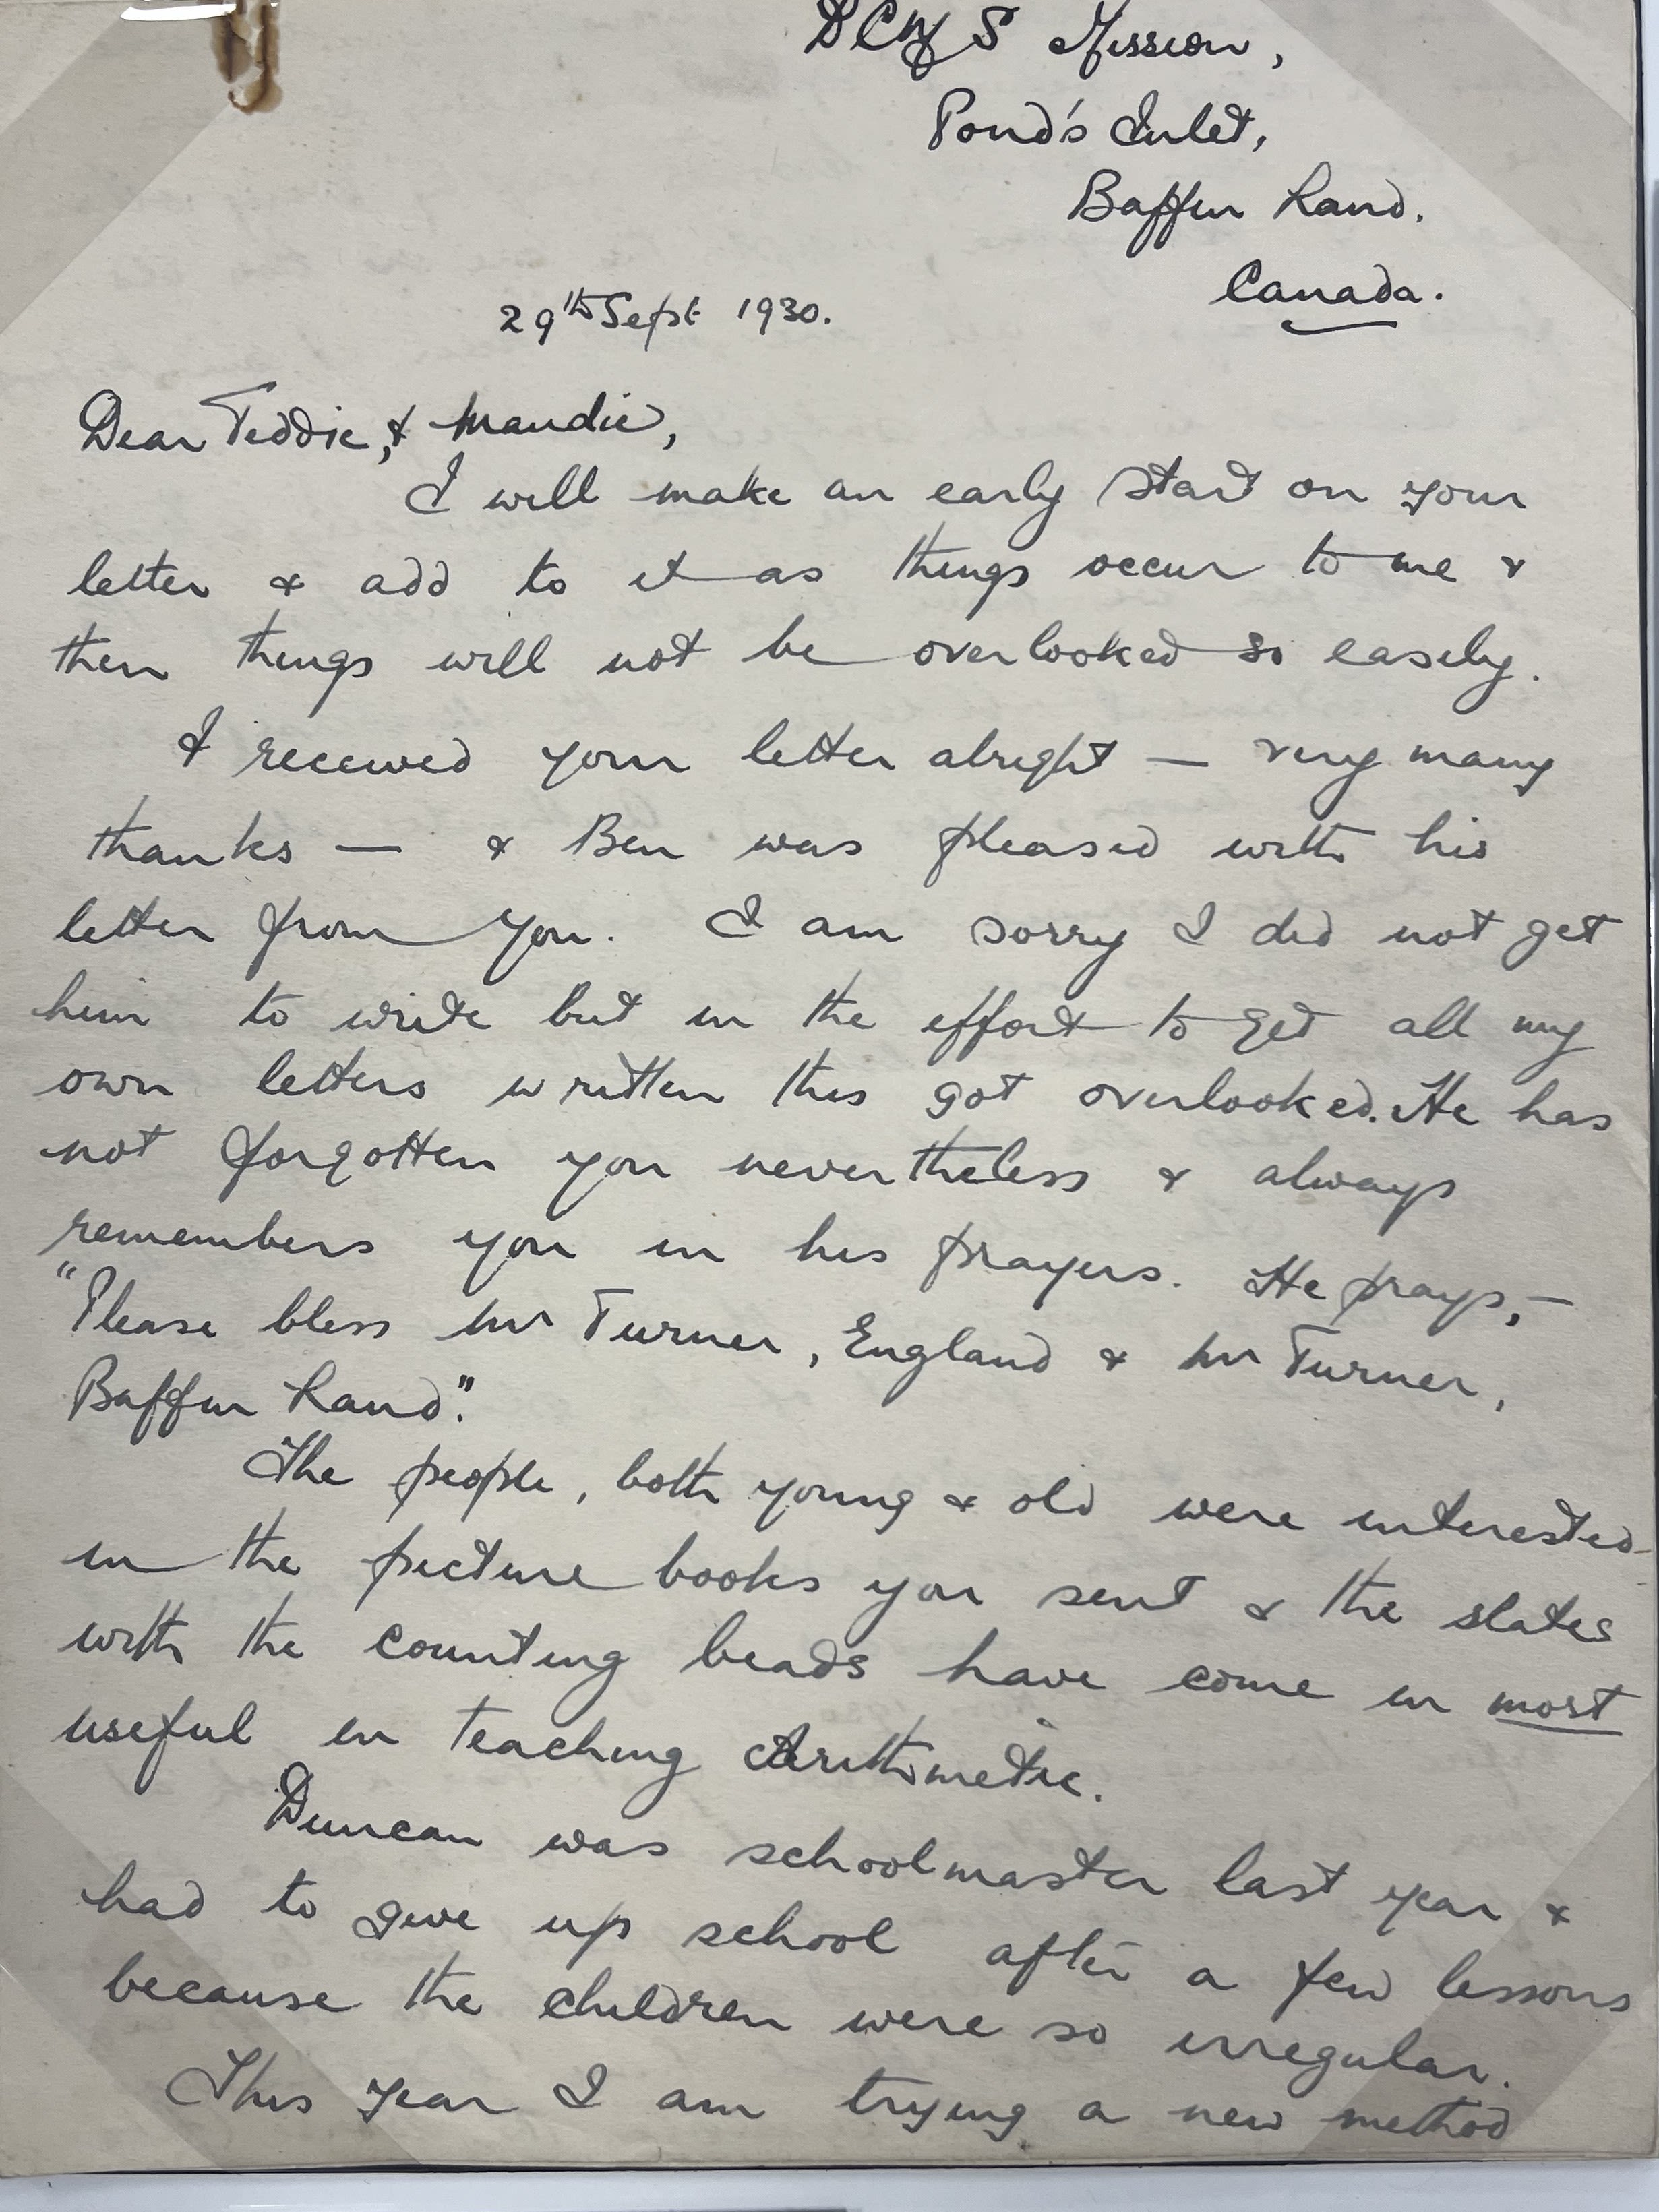 BCMS Mission,
Pond's Inlet,
Baffin Land.
Canada.
29th Sept 1930.
Dear Teddie, & Maudie,
I will make an early start on your
letter & add to it as things occur to me &
then things will not be overlooked so easily.
I received your letter alright — very many
thanks — & Ben was pleased with his
letter from you. I am sorry I did not get
him to write but in the effort to get all my
own letters written this got overlooked. He has
not forgotten you nevertheless & always
remembers you in his prayers. He prays, —
"Please bless Mr Turner, England & Mr Turner,
Baffin Land."
The people, both young & old were interested
in the picture books you sent & the slates
with the counting beads have come in most
useful in teaching Arithmetic.
Duncan was schoolmaster last year &
had to give up school after a few lessons
because the children were so irregular.
This year I am trying a new method